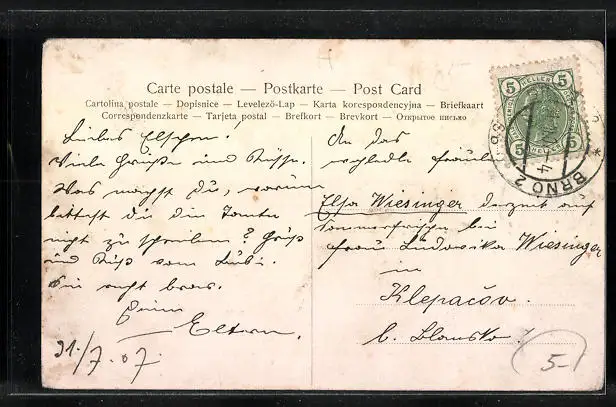 Carte postale — Postkarte — Post Card
Cartolina postale — Dopisnice — Levelező-Lap — Karta korespondencyjna — Briefkaart
Correspondenzkarte — Tarjeta postal — Brefkort — Brevkort — Открытое письмо
Liebes Elschen!
Viele Grüße und Küsse.
Was machst du, warum
du die Tante
nicht zu schreiben? Gruß
und Kuß vom Bubi.
Sei recht brav.
Deine
Eltern.
31/7.07.
An das
Fräulein
Elsa Wiesinger derzeit auf
Sommerfrische bei
Frau Ludovika Wiesinger
in
Klepačov.
b. Blansko.
5-
5 HELLER 5
5 5
BRNO 2